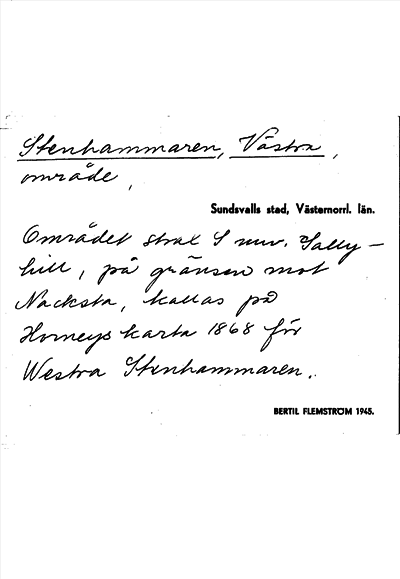 Stenhammaren, Västra,
område,
Sundsvalls stad, Västernorrl. län.
Området strax S nuv. Sally-
hill, på gränsen mot
Nacksta, kallas på
Horneys karta 1868 för
Westra Stenhammaren.
BERTIL FLEMSTRÖM 1945.